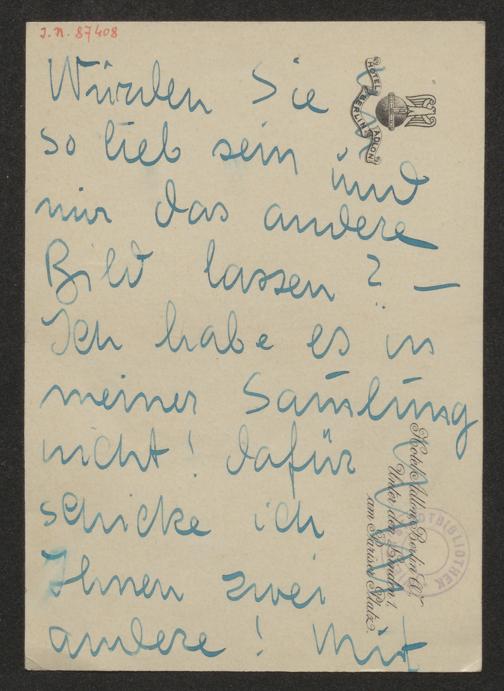 J.N. 87408
Würden Sie
so lieb sein und
mir das andere
Bild lassen? —
Ich habe es in
meiner Samlung
nicht! dafür
schicke ich
Ihnen zwei
andere! Mit
HOTEL ADLON
BERLIN
Hotel Adlon Berlin W.
Unter den Linden 1.
am Pariser Platz.